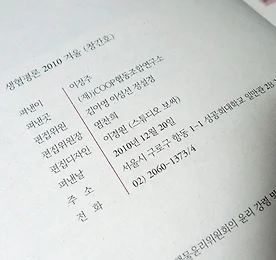 생협평론 2010 겨울 (창간호)
펴낸이 이정주
펴낸곳 (재)iCOOP협동조합연구소
편집위원 김아영 이상선 정설경
편집위원장 염찬희
편집디자인 이경원 (스튜디오 보싸)
펴낸날 2010년 12월 20일
주 소 서울시 구로구 항동 1-1 성공회대학교 일만관
전 화 02) 2060-1373/4
윤리위원회의 윤리 강령